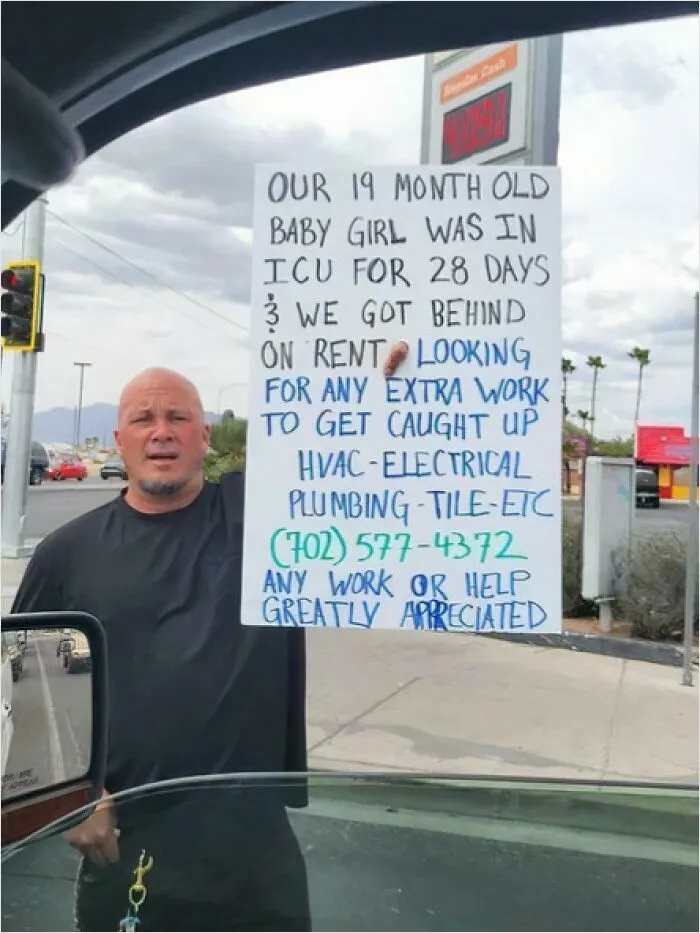 Regular Cash
OUR 19 MONTH OLD
BABY GIRL WAS IN
ICU FOR 28 DAYS
& WE GOT BEHIND
ON RENT LOOKING
FOR ANY EXTRA WORK
TO GET CAUGHT UP
HVAC-ELECTRICAL
PLUMBING-TILE-ETC
(702) 577-4372
ANY WORK OR HELP
GREATLY APPRECIATED